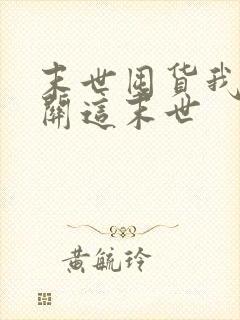 末世囤货我
開這末世
黄毓玲